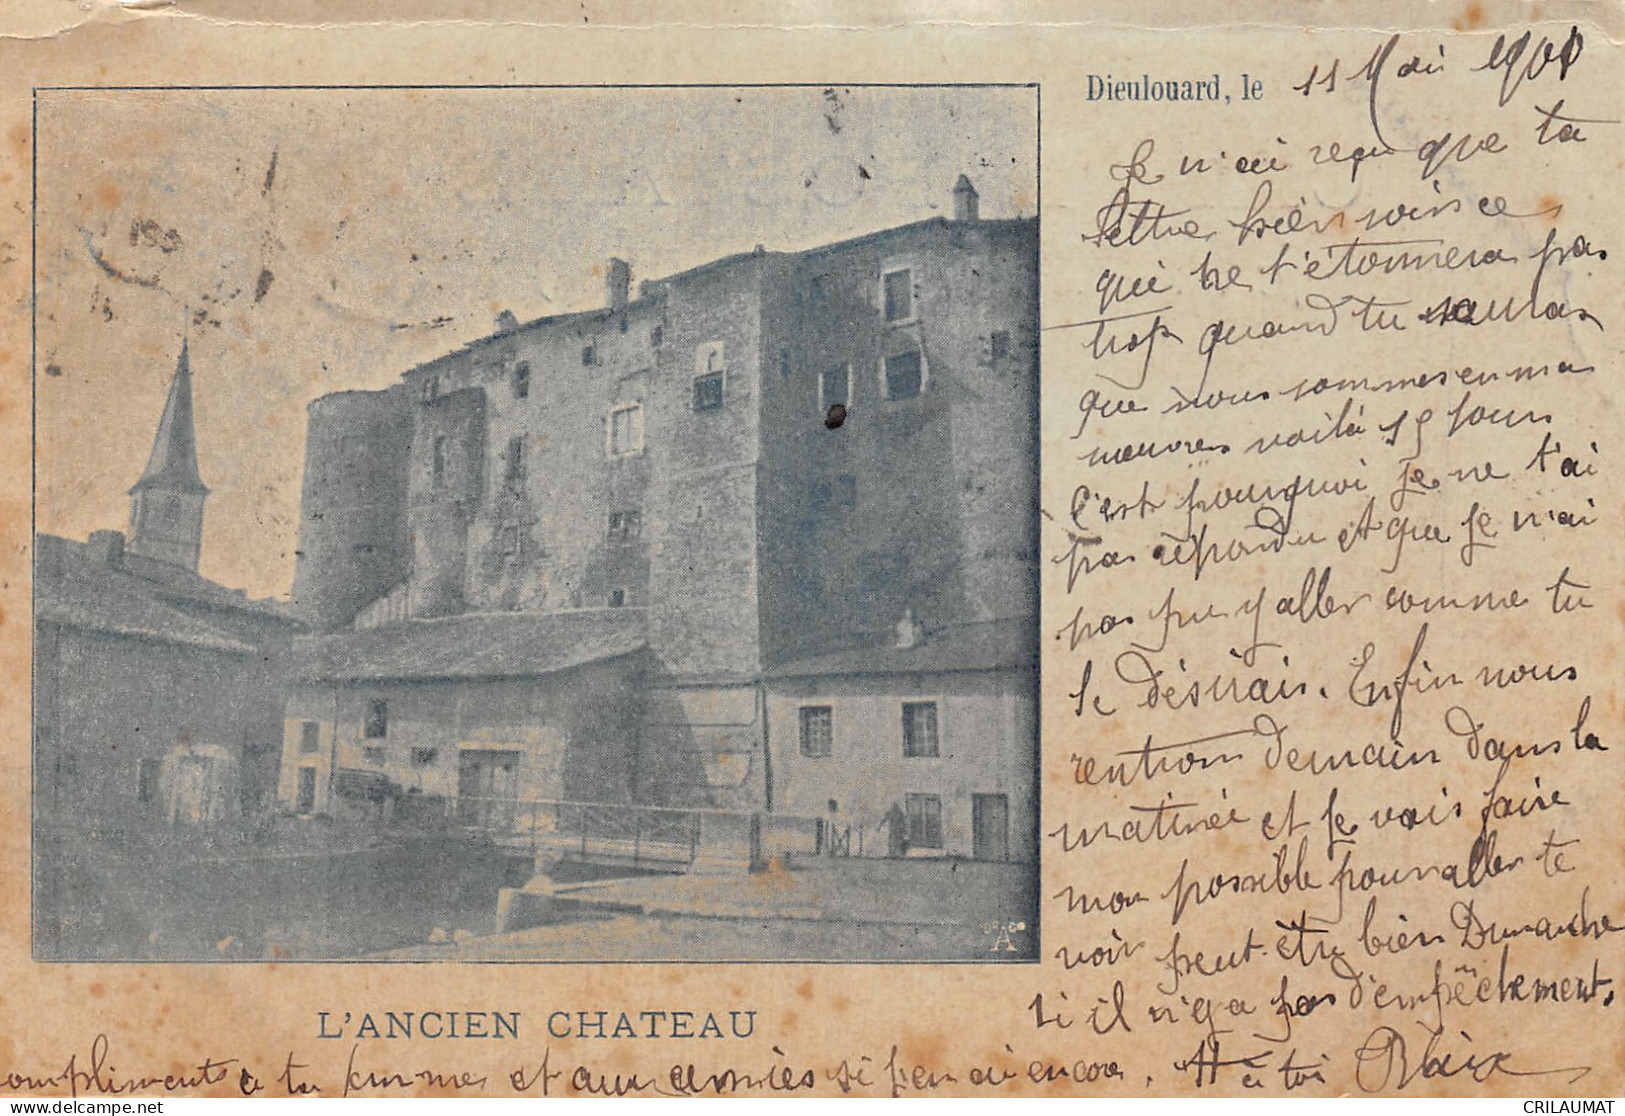 Dieulouard, le 11 Mai 1901
Je n'ai reçu que ta
lettre hier soir ce
qui ne t'étonnera pas
trop quand tu sauras
que nous sommes en ma
nœuvres voilà 15 jours
C'est pourquoi je ne t'ai
pas répondu et que je n'ai
pas pu y aller comme tu
le désirais. Enfin nous
rentrons demain dans la
matinée et je vais faire
mon possible pour aller te
voir peut-être bien Dimanche
si il n'y a pas d'empêchement.
L'ANCIEN CHATEAU
compliments à ta femme et aux amies si j'en ai encore. à toi
CRILAUMAT